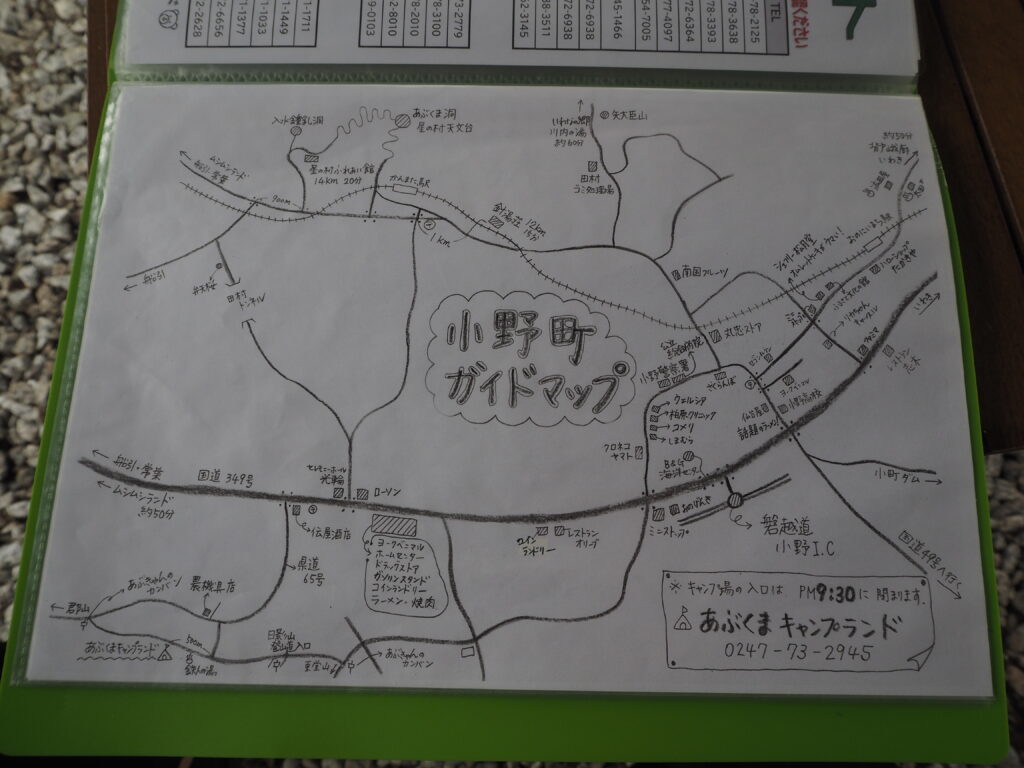 TEL
78-2125
78-3638
78-3393
72-6364
77-4097
54-7005
45-1466
72-6938
72-6938
38-3511
62-3145
73-2779
78-3100
78-2010
2-8010
9-0103
1-1711
1-1449
1-1033
71-1377
2-6656
72-2628
入水鍾乳洞
あぶくま洞
星の村天文台
星の村ふれあい館
14km 20分
かんまた駅
いわなの郷
川内の湯
約60分
矢大臣山
田村
ムシムシランド
船引・常葉
900m
1km
針湯荘
12km
船引
田村
トンネル
南国フルーツ
丸忠ストア
小野町
ガイドマップ
小野警察署
さくらんぼ
ウェルシア
柏原クリニック
コメリ
しまむら
クロネコ
ヤマト
B&G
海洋センター
仙台屋
話題のラーメン
小野高校
いわき
レストラン
小町ダム
国道49号へ行く
船引・常葉
国道349号
ムシムシランド
約50分
セレモニーホール
光輪
ローソン
伝屋酒店
県道
65号
ヨークベニマル
ホームセンター
ドラッグストア
ガソリンスタンド
コインランドリー
ラーメン・焼肉
コイン
ランドリー
レストラン
オリーブ
ミニストップ
磐越道
小野I.C
郡山
あぶきゃんの
カンバン
農機具店
あぶくまキャンプランド
500m
日影山
登山道入口
東堂山
あぶきゃんの
カンバン
※キャンプ場の入口は PM9:30に閉まります。
あぶくまキャンプランド
0247-73-2945